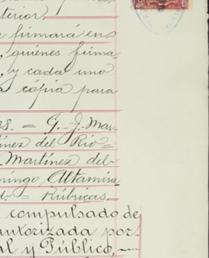 terior.
e firmará en
, quiénes firma-
, y cada uno
a copia para
28. — G. J. Mar-
tínez del Río =
. Martínez del
mingo, Altamira
do = Rúbricas.
compulsado de
autorizada por
al y Público, —